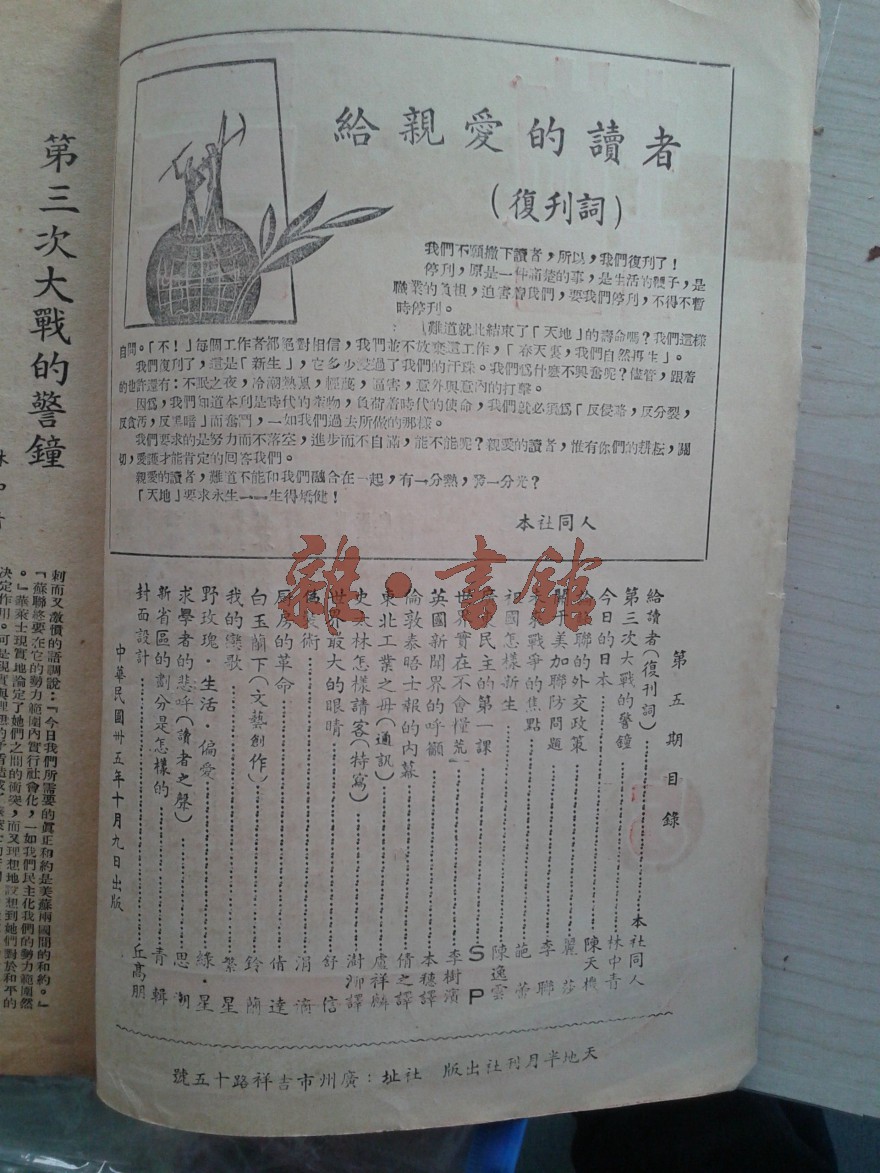 給親愛的讀者
(復刊詞)
我們不願撇下讀者，所以，我們復刊了！
停刊，原是一件痛楚的事，是生活的
職業的負担，迫害着我們，要我們停刊，不得不暫
時停刊。
難道就此結束了「天地」的壽命嗎？我們這樣
自問。「不！」每個工作者都絕對相信，我們並不放棄這工作，「春天裏，我們自然再生」。
我們復刊了，這是「新生」，它多少浸過了我們的汗珠。我們爲什麽不興奮呢？儘管，跟着
的也許還有：不眠之夜，冷潮熱風，輕蔑，逼害，意外與意內的打擊。
因爲，我們知道本刊是時代的產物，負荷着時代的使命，我們就必須爲「反侵略，反分裂，
反貪汚，反黑暗」而奮鬥，一如我們過去所做的那樣。
我們要求的是努力而不落空，進步而不自滿，能不能呢？親愛的讀者，惟有你們的耕耘，關
切，愛護才能肯定的回答我們。
親愛的讀者，難道不能和我們融合在一起，有一分熱，發一分光？
「天地」要求永生——生得矯健！
本社同人
第五期目錄
給讀者(復刊詞)……本社同人
第三次大戰的警鐘……林中青
今日的日本……陳天機
蘇聯的外交政策……麗莎
關于美加聯防問題……李聯
未來戰爭的焦點……
祖國怎樣新生……陳逸雲
民主的第一課……SP
世界實在不會糧荒……李樹濱
英國新聞界的呼籲……本穗譯
倫敦泰晤士報的內幕……倩之譯
東北工業之母(通訊)……盧祥麟
史太林怎樣請客(特寫)……澍柳譯
世界最大的眼睛……舒信
術……涓滴
厨房的革命……倩達
白玉蘭下(文藝創作)……鈴蘭
我的戀歌……繁星
野玫瑰·生活·偏愛……綠·星
求學者的悲呼(讀者之聲)……思潮
新省區的劃分是怎樣的……青輯
封面設計……丘高朋
中華民國卅五年十月九日出版
天地半月刊社出版　社址：廣州市吉祥路十五號
第三次大戰的警鐘
刺而又激憤的語調說：「今日我們所需要的眞正和約是美蘇兩國間的和約。」
「蘇聯終要在它的勢力範圍內實行社會化，一如我們民主化我們的勢力範圍然
。」華萊士現實地論定了她們之間的衝突，而又理想地設想到她們對於和平的
雜·書館